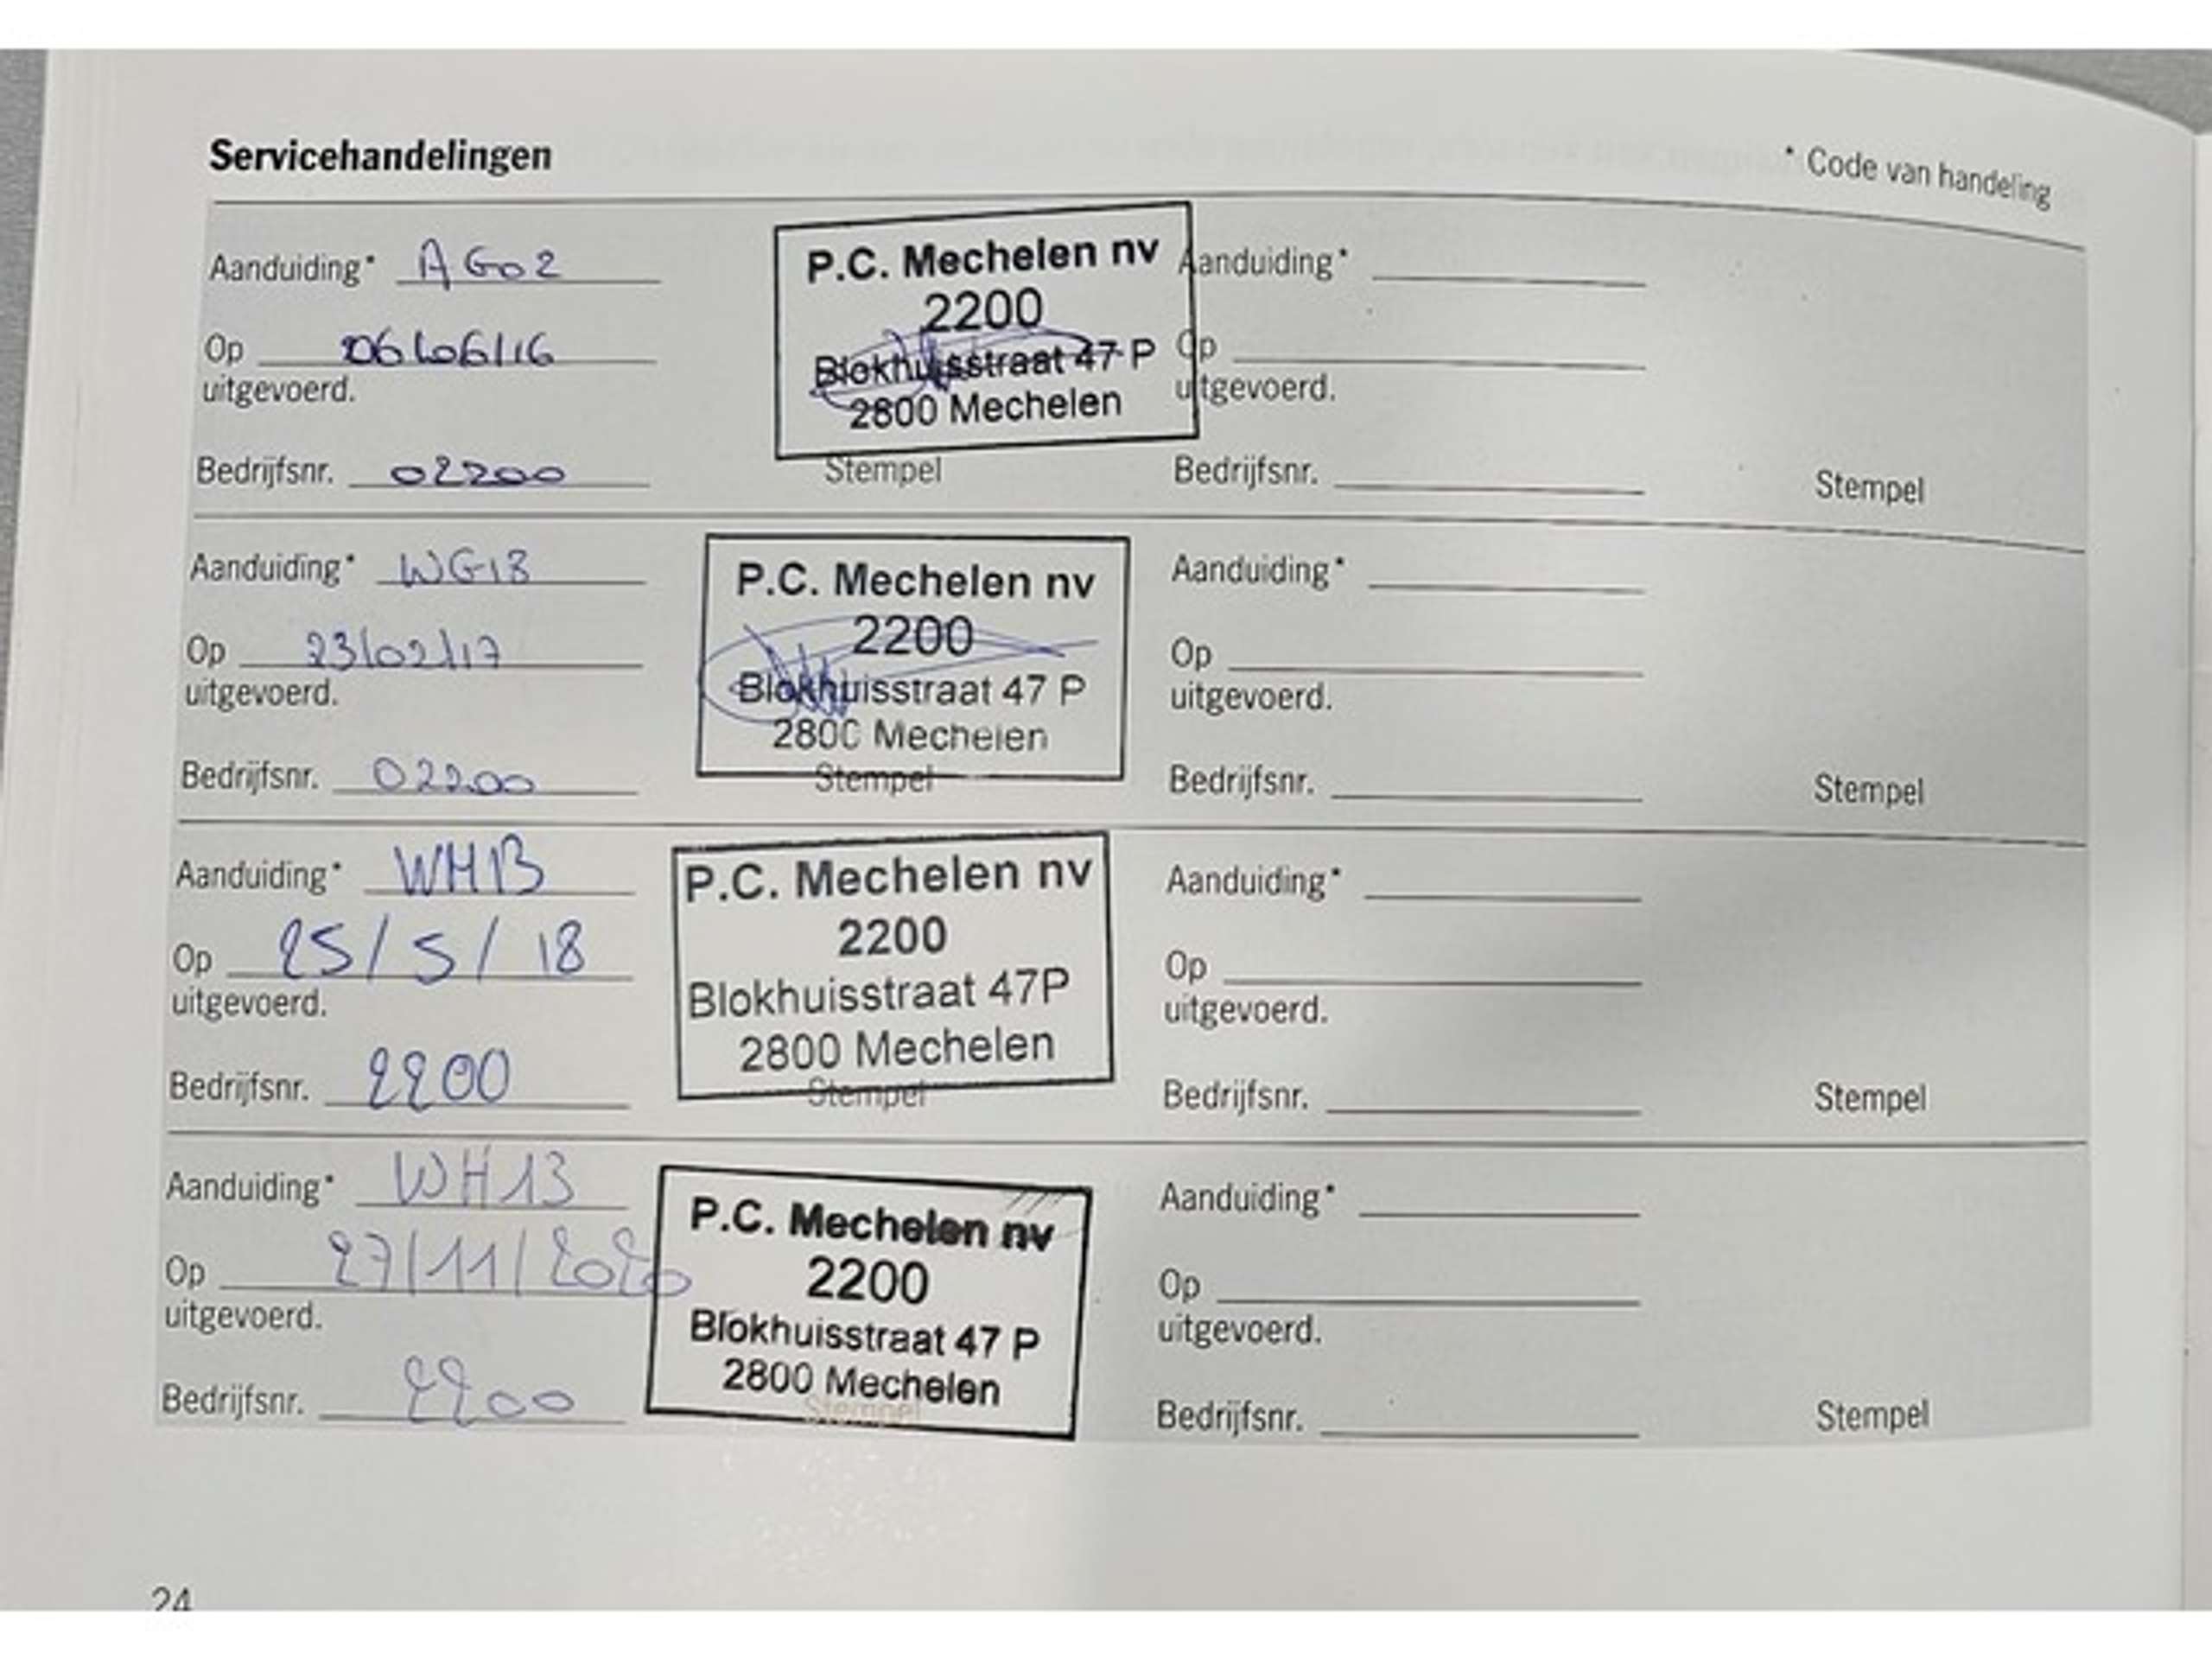 Servicehandelingen
* Code van handeling
Aanduiding* AG02
Op 06/06/16
uitgevoerd.
Bedrijfsnr. 02200
P.C. Mechelen nv
2200
Blokhuisstraat 47 P
2800 Mechelen
Stempel
Aanduiding*
Op
uitgevoerd.
Bedrijfsnr.
Stempel
Aanduiding* WG13
Op 23/02/17
uitgevoerd.
Bedrijfsnr. 02200
P.C. Mechelen nv
2200
Blokhuisstraat 47 P
2800 Mechelen
Stempel
Aanduiding*
Op
uitgevoerd.
Bedrijfsnr.
Stempel
Aanduiding* WH13
Op 25/5/18
uitgevoerd.
Bedrijfsnr. 2200
P.C. Mechelen nv
2200
Blokhuisstraat 47P
2800 Mechelen
Stempel
Aanduiding*
Op
uitgevoerd.
Bedrijfsnr.
Stempel
Aanduiding* WH13
Op 27/11/2020
uitgevoerd.
Bedrijfsnr. 2200
P.C. Mechelen nv
2200
Blokhuisstraat 47 P
2800 Mechelen
Stempel
Aanduiding*
Op
uitgevoerd.
Bedrijfsnr.
Stempel
24